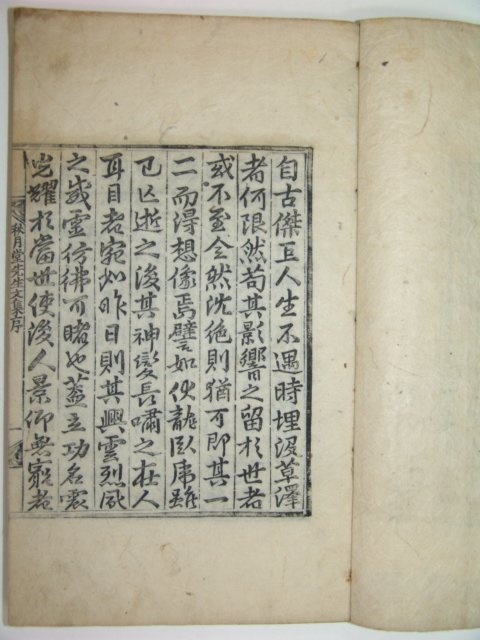 自古傑巨人生不遇時埋沒草澤
者何限然苟其影響之留於世者
或不至全然沈絶則猶可即其一
二而得想像焉譬如伏龍臥虎雖
已亡逝之後其神髮長嘯之在人
耳目者宛如昨日則其興雲烈風
之威靈彷彿可睹也蓋立功名震
光耀於當世使後人景仰無窮者
秋月堂先生文集序
一